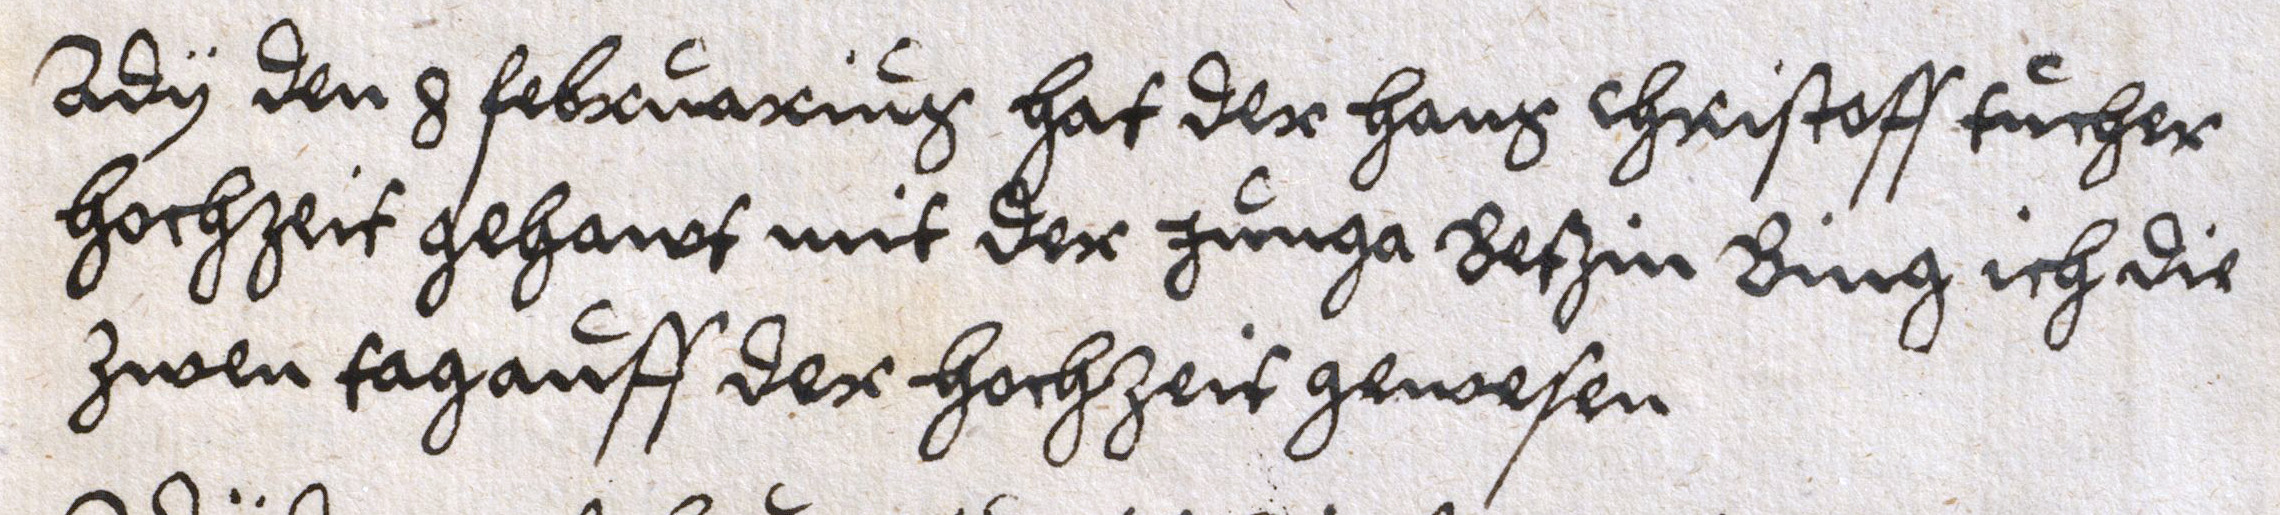 Adÿ den 8 februarius hat der hans Christoff tucher
hochzeit gehawt mit der Junga Beßin Bing ich die
zwen tag auff der hochzeit gewesen